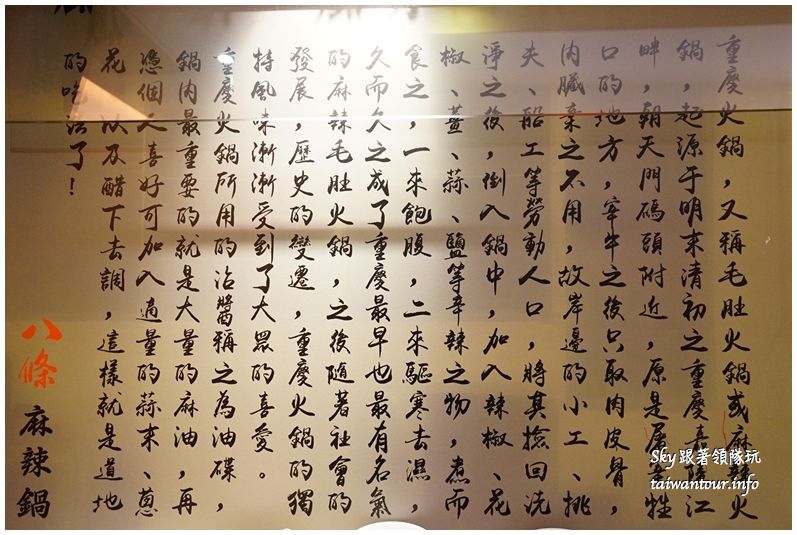 重慶火鍋，又稱毛肚火鍋或麻辣火
鍋，起源于明末清初之重慶嘉陵江
畔，朝天門碼頭附近，原是屠宰牲
口的地方，宰牛之後只取肉皮骨，
內臟棄之不用，故岸邊的小工、挑
夫、船工等勞動人口，將其撿回洗
淨之後，倒入鍋中，加入辣椒、花
椒、薑、蒜、鹽等辛辣之物，煮而
食之，一來飽腹，二來驅寒去濕，
久而久之成了重慶最早也最有名氣
的麻辣毛肚火鍋，之後隨著社會的
發展，歷史的變遷，重慶火鍋的獨
特風味漸漸受到了大眾的喜愛。
重慶火鍋所用的沾醬稱之為油碟，
鍋內最重要的就是大量的麻油，再
憑個人喜好可加入適量的蒜末、蔥
花 以及醋下去調，這樣就是道地
的吃法了！
八條麻辣鍋
Sky跟著領隊玩
taiwantour.info